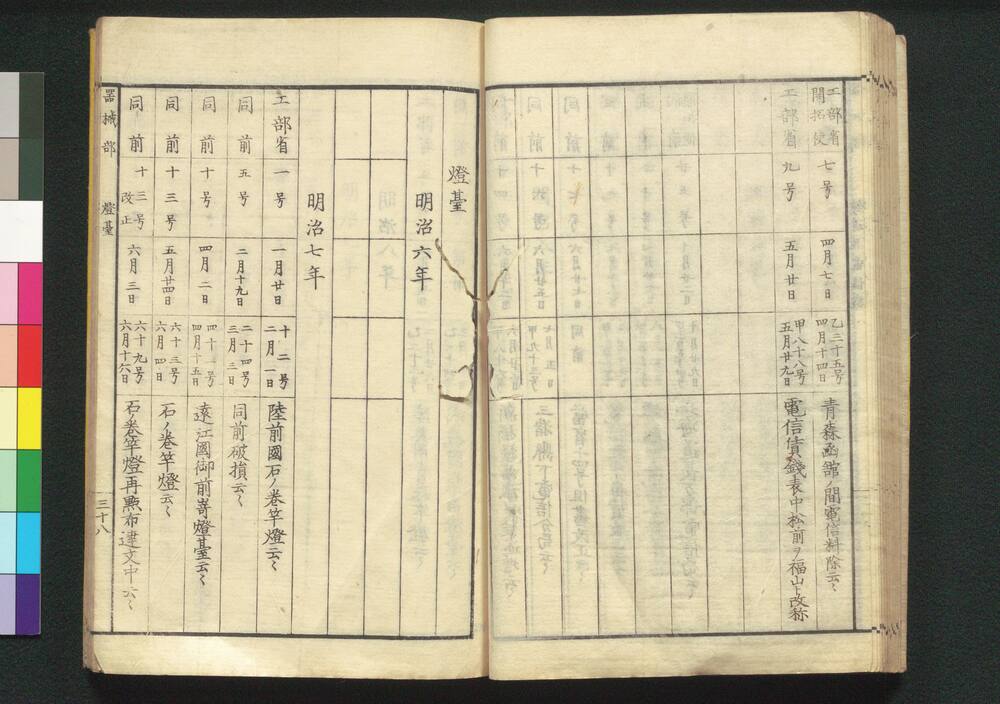 工部省 開拓使 七号 四月七日 乙三十五号 四月十四日 青森函館ノ間電信料除云〻
工部省 九号 五月廿日 甲八十八号 五月廿九日 電信賃錢表中松前ヲ福山ト改称
燈臺
明治六年
明治七年
工部省 一号 一月廿日 十二号 二月一日 陸前國石ノ巻竿燈云〻
同前 五号 二月十九日 二十四号 三月三日 同前破損云〻
同前 十号 四月二日 四十一号 四月十五日 遠江國御前嵜燈臺云〻
同前 十三号 五月廿四日 六十三号 六月四日 石ノ巻竿燈云〻
同前 十三号改正 六月三日 六十九号 六月十六日 石ノ巻竿燈再㸃布達文中云〻
器械部 燈臺 三十八